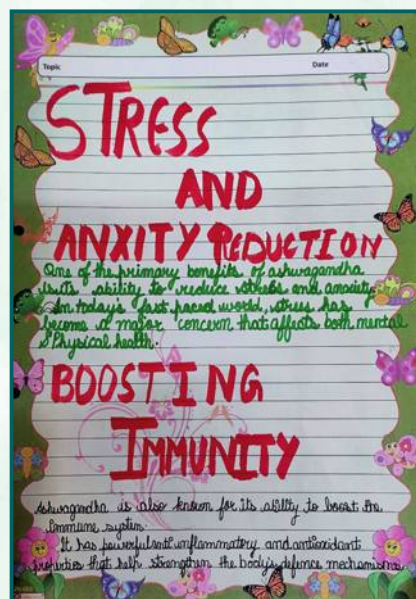 Topic
Date
STRESS
AND
ANXITY REDUCTION
One of the primary benefits of ashwagandha
is its ability to reduce stress and anxiety.
In today's fast paced world, stress has
become a major concern that affects both mental
& Physical health.
BOOSTING
IMMUNITY
Ashwagandha is also known for its ability to boost the
immune system.
It has powerful anti inflammatory and antioxidant
properties that help strengthen the body's defence mechanisms